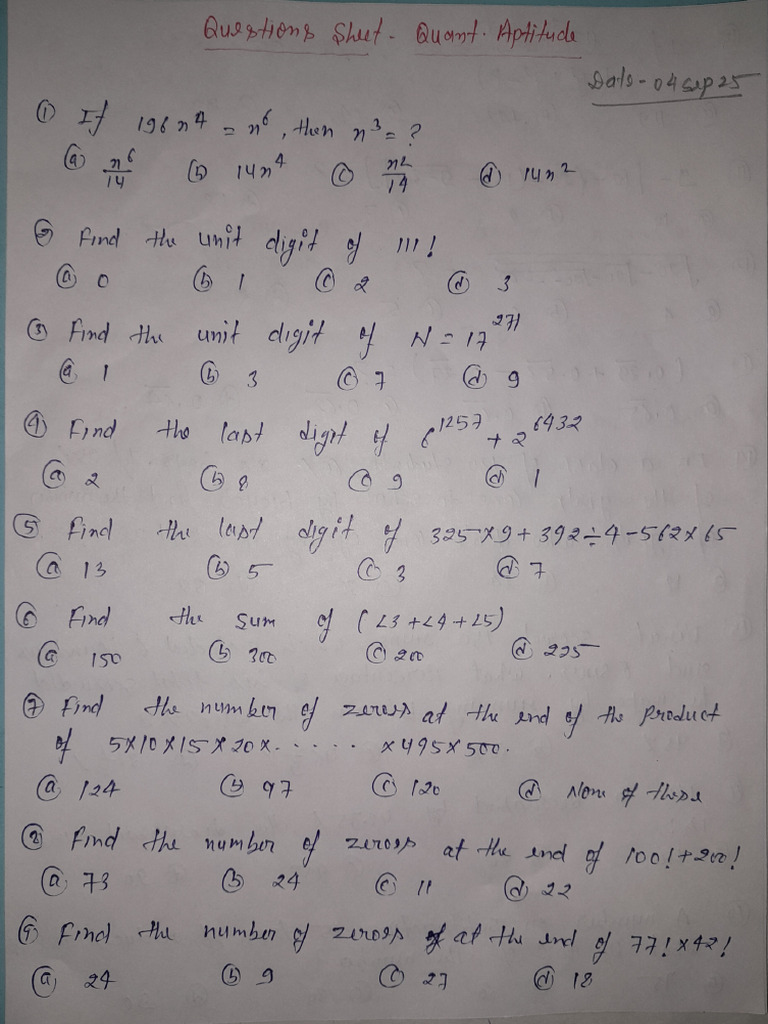 Questions Sheet - Quant. Aptitude
Date - 04 Sep 25
① If 196n⁴ = n⁶, then n³ = ?
ⓐ n⁶/14 ⓑ 14n⁴ ⓒ n²/14 ⓓ 14n²
② Find the unit digit of 111!
ⓐ 0 ⓑ 1 ⓒ 2 ⓓ 3
③ Find the unit digit of N = 17²⁷¹
ⓐ 1 ⓑ 3 ⓒ 7 ⓓ 9
④ Find the last digit of 6¹²⁵⁷ + 2⁶⁴³²
ⓐ 2 ⓑ 8 ⓒ 9 ⓓ 1
⑤ Find the last digit of 325×9+392÷4-562×65
ⓐ 13 ⓑ 5 ⓒ 3 ⓓ 7
⑥ Find the sum of (∠3+∠4+∠5)
ⓐ 150 ⓑ 300 ⓒ 200 ⓓ 225
⑦ Find the number of zeross at the end of the product
of 5×10×15×20×. . . . . ×495×500.
ⓐ 124 ⓑ 97 ⓒ 120 ⓓ None of these
⑧ Find the number of zeross at the end of 100!+200!
ⓐ 73 ⓑ 24 ⓒ 11 ⓓ 22
⑨ Find the number of zeross at the end of 77!×42!
ⓐ 24 ⓑ 9 ⓒ 27 ⓓ 18